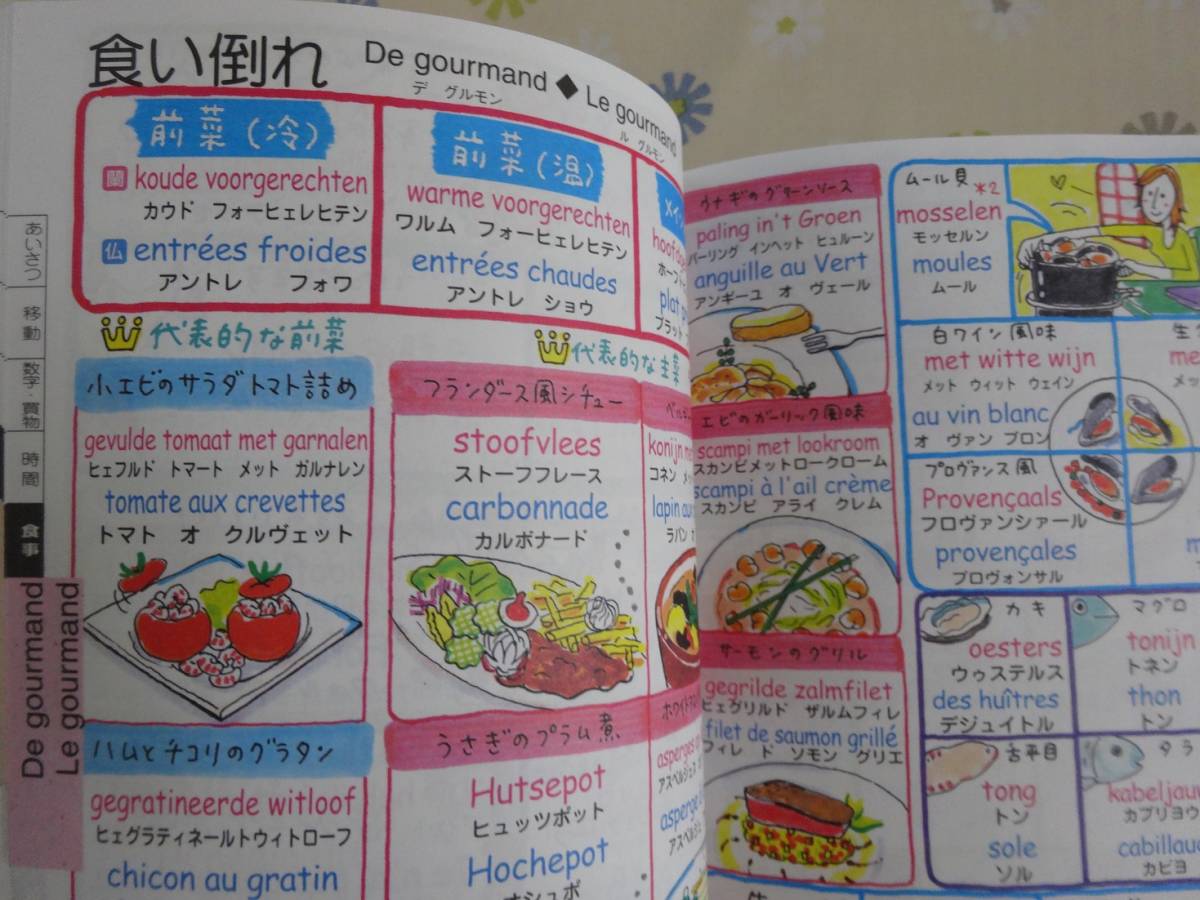 食い倒れ
De gourmand ◆ Le gourmand
デ グルモン
ル グルモン
前菜(冷)
蘭 koude voorgerechten
カウド フォーヒェレヒテン
仏 entrées froides
アントレ フォワ
前菜(温)
warme voorgerechten
ワルム フォーヒェレヒテン
entrées chaudes
アントレ ショウ
代表的な前菜
小エビのサラダトマト詰め
gevulde tomaat met garnalen
ヒェフルド トマート メット ガルナレン
tomate aux crevettes
トマト オ クルヴェット
ハムとチコリのグラタン
gegratineerde witloof
ヒェグラティネールトウィトローフ
chicon au gratin
代表的な主菜
フランダース風シチュー
stoofvlees
ストーフフレース
carbonnade
カルボナード
うさぎのプラム煮
Hutsepot
ヒュッツポット
Hochepot
オシュポ
konijn
コネン
lapin
ラパン
asperges
asperge
あいさつ
移動
数字・買物
時間
食事
De gourmand
Le gourmand
ウナギのグリーンソース
paling in't Groen
パーリング インヘット ヒュルーン
anguille au Vert
アンギーユ オ ヴェール
エビのガーリック風味
scampi met lookroom
スカンピメットロークローム
scampi à l'ail crème
スカンピ アライ クレム
サーモンのグリル
gegrilde zalmfilet
ヒェグリルド ザルムフィレ
filet de saumon grillé
フィレ ド ソモン グリエ
ムール貝
*2
mosselen
モッセルン
moules
ムール
白ワイン風味
met witte wijn
メット ウィット ウェイン
au vin blanc
オ ヴァン ブロン
プロヴァンス風
Provençaals
フロヴァンシャール
provençales
プロヴォンサル
カキ
oesters
ウゥステルス
des huîtres
デジュイトル
マグロ
tonijn
トネン
thon
トン
舌平目
tong
トン
sole
ソル
タラ
カブリヨウ
カビヨ